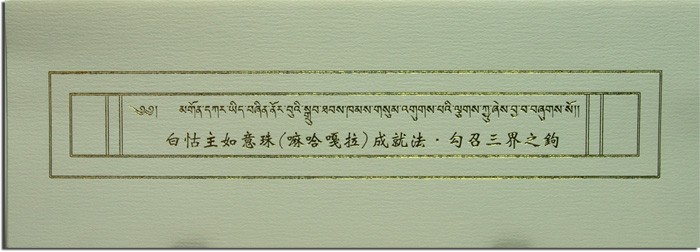 ༄༅༅། མགོན་དཀར་ཡིད་བཞིན་ནོར་བུའི་སྒྲུབ་ཐབས་ཁམས་གསུམ་འགུགས་པའི་ལྕགས་ཀྱུ་ཞེས་བྱ་བ་བཞུགས་སོ།།
白怙主如意珠(嘛哈嘎拉)成就法·勾召三界之鉤